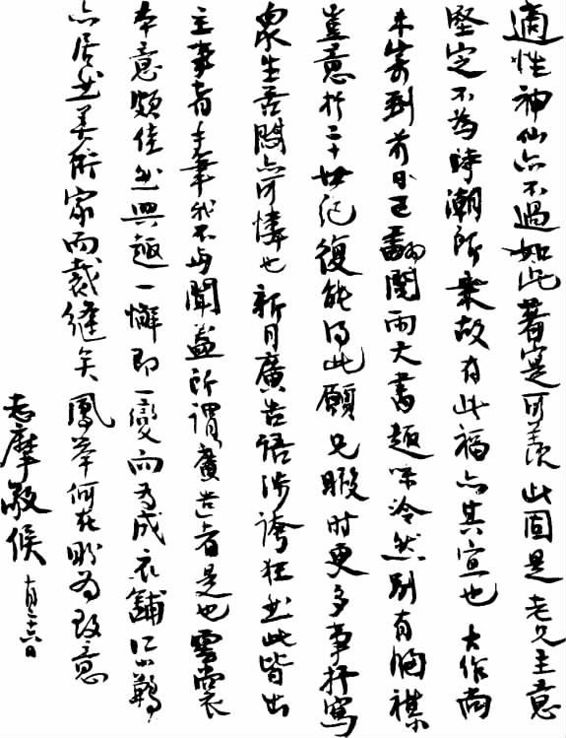 適性神仙亦不過如此著寔可羨此固是老兄主意
堅定不為時潮所乘故有此福亦其宜也大作尚
未寄到前日已翻閱兩大書趣味泠然別有胸襟
豈意於二十世紀復能得此願兄暇时更多事抒寫
眾生吾儕亦可憐也新月廣告語涉誇狂然此皆出
主事者手筆我不与聞蓋所謂廣告者是也雲裳
本意頗佳然興趣一懈即一變而為成衣鋪江小鶼
亦居然美術家而裁縫矣鳳舉何在盼为致意
志摩敬候 十月二十六日